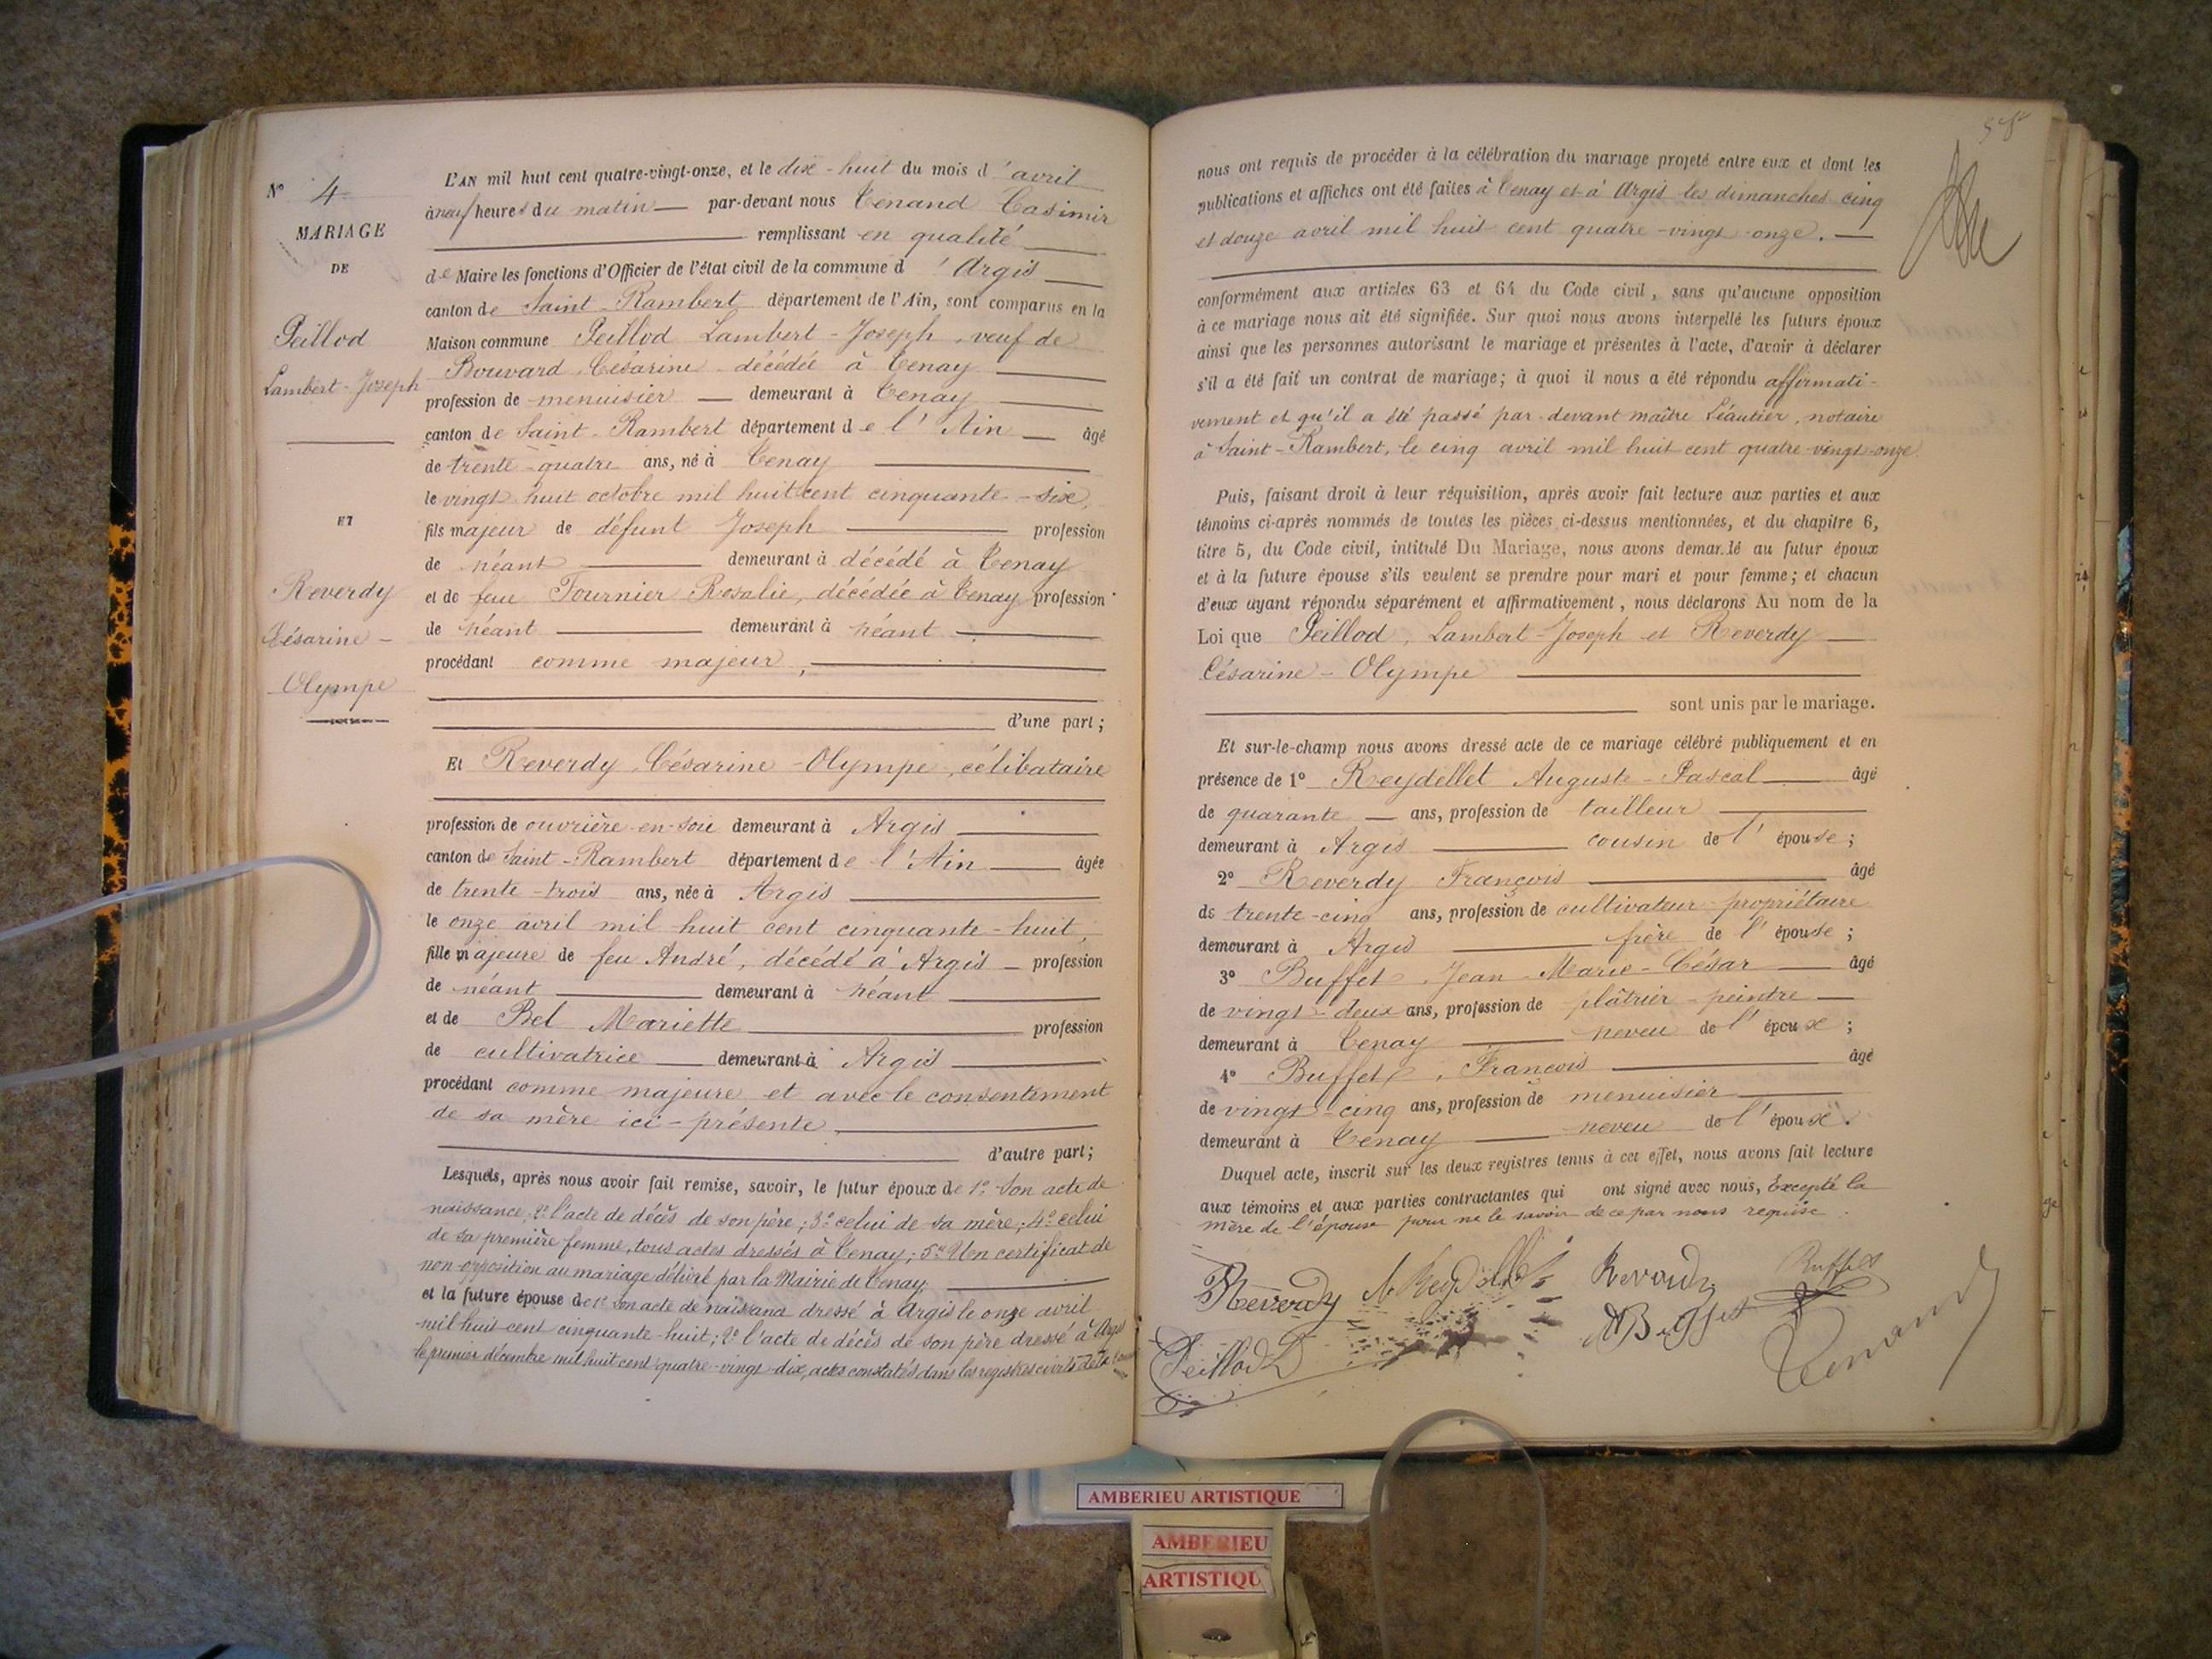 N° 4
MARIAGE
DE
Peillod
Lambert-Joseph
ET
Reverdy
Césarine-
Olympe
L'AN mil huit cent quatre-vingt-onze, et le dix-huit du mois d'avril
à neuf heures du matin — par-devant nous Tenand Casimir
remplissant en qualité
de Maire les fonctions d'Officier de l'état civil de la commune d'Argis
canton de Saint-Rambert département de l'Ain, sont comparus en la
Maison commune Peillod Lambert-Joseph, veuf de
Bouvard Césarine décédée à Tenay
profession de menuisier — demeurant à Tenay
canton de Saint-Rambert département de l'Ain — âgé
de trente-quatre ans, né à Tenay
le vingt huit octobre mil huit cent cinquante-six,
fils majeur de défunt Joseph — profession
de néant — demeurant à décédé à Tenay
et de feue Tournier Rosalie, décédée à Tenay profession
de néant — demeurant à néant
procédant comme majeur,
d'une part;
Et Reverdy, Césarine-Olympe, célibataire
profession de ouvrière en soie demeurant à Argis
canton de Saint-Rambert département de l'Ain — âgée
de trente-trois ans, née à Argis
le onze avril mil huit cent cinquante-huit,
fille majeure de feu André, décédé à Argis — profession
de néant — demeurant à néant
et de Bel Mariette — profession
de cultivatrice — demeurant à Argis
procédant comme majeure et avec le consentement
de sa mère ici-présente,
d'autre part;
Lesquels, après nous avoir fait remise, savoir, le futur époux de 1° Son acte de
naissance; 2° l'acte de décès de son père; 3° celui de sa mère; 4° celui
de sa première femme, tous actes dressés à Tenay; 5° Un certificat de
non-opposition au mariage délivré par la Mairie de Tenay,
et la future épouse de 1° son acte de naissance dressé à Argis le onze avril
mil huit cent cinquante-huit; 2° l'acte de décès de son père dressé à Argis
le premier décembre mil huit cent quatre-vingt-dix, actes constatés dans les registres civils de la
nous ont requis de procéder à la célébration du mariage projeté entre eux et dont les
publications et affiches ont été faites à Tenay et à Argis les dimanches cinq
et douze avril mil huit cent quatre-vingt-onze. —
conformément aux articles 63 et 64 du Code civil, sans qu'aucune opposition
à ce mariage nous ait été signifiée. Sur quoi nous avons interpellé les futurs époux
ainsi que les personnes autorisant le mariage et présentes à l'acte, d'avoir à déclarer
s'il a été fait un contrat de mariage; à quoi il nous a été répondu affirmati-
vement et qu'il a été passé par-devant maître Léautier, notaire
à Saint-Rambert, le cinq avril mil huit cent quatre-vingt-onze.
Puis, faisant droit à leur réquisition, après avoir fait lecture aux parties et aux
témoins ci-après nommés de toutes les pièces ci-dessus mentionnées, et du chapitre 6,
titre 5, du Code civil, intitulé Du Mariage, nous avons demandé au futur époux
et à la future épouse s'ils veulent se prendre pour mari et pour femme; et chacun
d'eux ayant répondu séparément et affirmativement, nous déclarons Au nom de la
Loi que Peillod, Lambert-Joseph et Reverdy —
Césarine-Olympe
sont unis par le mariage.
Et sur-le-champ nous avons dressé acte de ce mariage célébré publiquement et en
présence de 1° Reydellet Auguste-Pascal — âgé
de quarante — ans, profession de tailleur
demeurant à Argis — cousin de l'épouse;
2° Reverdy François — âgé
de trente-cinq ans, profession de cultivateur propriétaire
demeurant à Argis — frère de l'épouse;
3° Buffet, Jean-Marie-César — âgé
de vingt-deux ans, profession de plâtrier-peintre —
demeurant à Tenay — neveu de l'époux;
4° Buffet, François — âgé
de vingt-cinq ans, profession de menuisier
demeurant à Tenay — neveu de l'époux.
Duquel acte, inscrit sur les deux registres tenus à cet effet, nous avons fait lecture
aux témoins et aux parties contractantes qui ont signé avec nous, Excepté la
mère de l'épouse pour ne le savoir de ce par nous requise.
Reverdy A Reydellet Reverdy Buffet
Peillod L Buffet Tenand
AMBERIEU ARTISTIQUE
AMBERIEU
ARTISTIQU